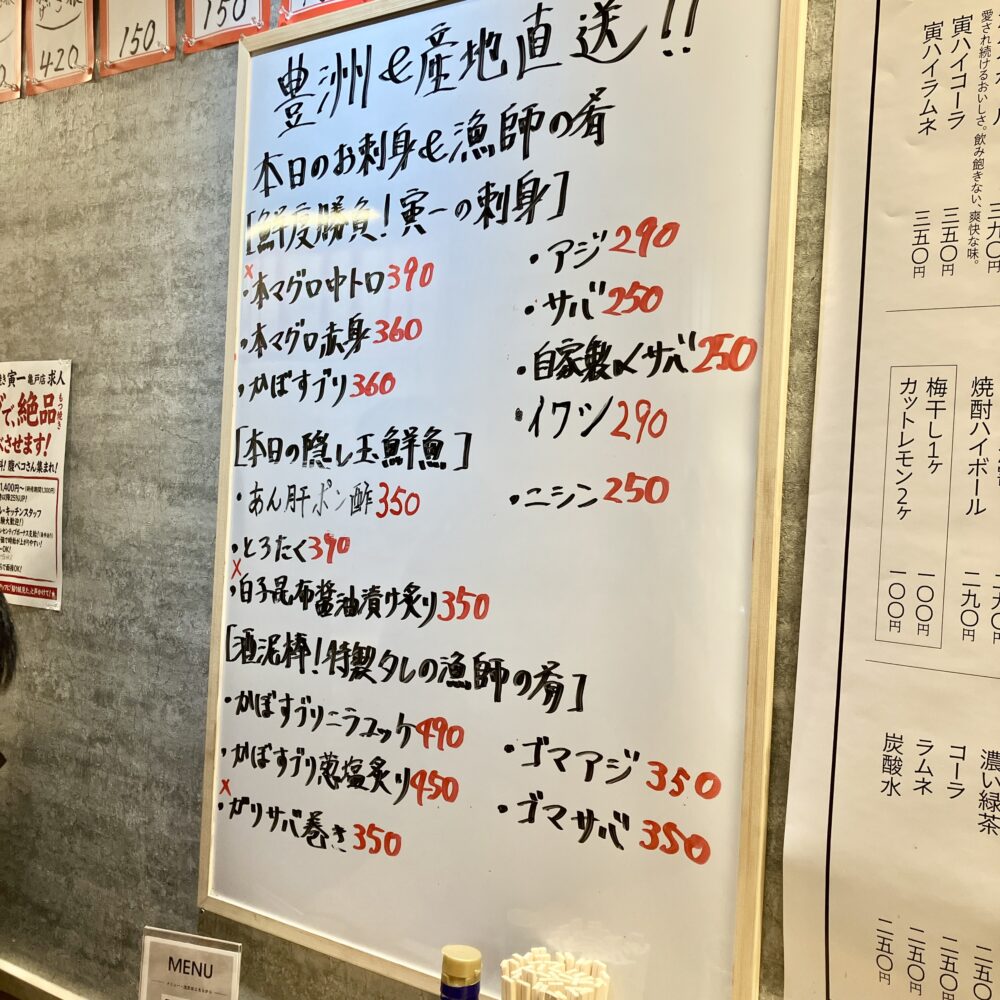 420
150
150
豊洲&産地直送!!
本日のお刺身&漁師の肴
[鮮度勝負!寅一の刺身]
×
・本マグロ中トロ390
・本マグロ赤身360
・かぼすブリ360
・アジ290
・サバ250
・自家製〆サバ250
・イワシ290
・ニシン250
[本日の隠し玉鮮魚]
・あん肝ポン酢350
・とろたく390
×
・白子昆布醤油漬け炙り350
[酒泥棒!特製タレの漁師の肴]
・かぼすブリニラユッケ490
・かぼすブリ葱塩炙り450
×
・ガリサバ巻き350
・ゴマアジ350
・ゴマサバ350
寅一 亀戸店 求人
で、絶品
もつ焼き
させます!
腹ペコさん集まれ!
1,400円〜
キッチンスタッフ
愛され続けるおいしさ。飲み飽きない、爽快な味。
寅ハイコーラ
三五〇円
寅ハイラムネ
三五〇円
焼酎ハイボール
二九〇円
梅干し1ヶ
一〇〇円
カットレモン2ヶ
一〇〇円
濃い緑茶
コーラ
ラムネ
炭酸水
二五〇円
二五〇円
二五〇円
MENU